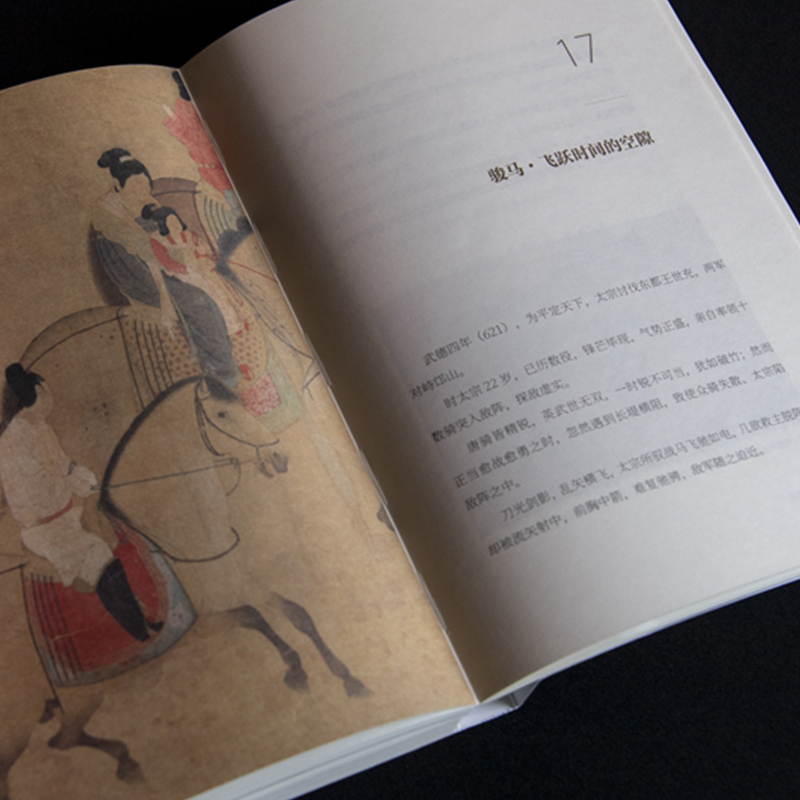 17
骏马·飞跃时间的空隙
武德四年（621），为平定天下，太宗讨伐东都王世充，两军
对峙邙山。
时太宗22岁，已历数役，锋芒毕现，气势正盛，亲自率领十
数骑突入敌阵，探敌虚实。
唐骑皆精锐，英武世无双，一时锐不可当，犹如破竹；然而
正当愈战愈勇之时，忽然遇到长堤横阻，致使众骑失散、太宗陷
敌阵之中。
刀光剑影，乱矢横飞，太宗所驭战马飞驰如电，几欲救主脱险
却被流矢射中，前胸中箭，难复驰骋，敌军随之迫近。